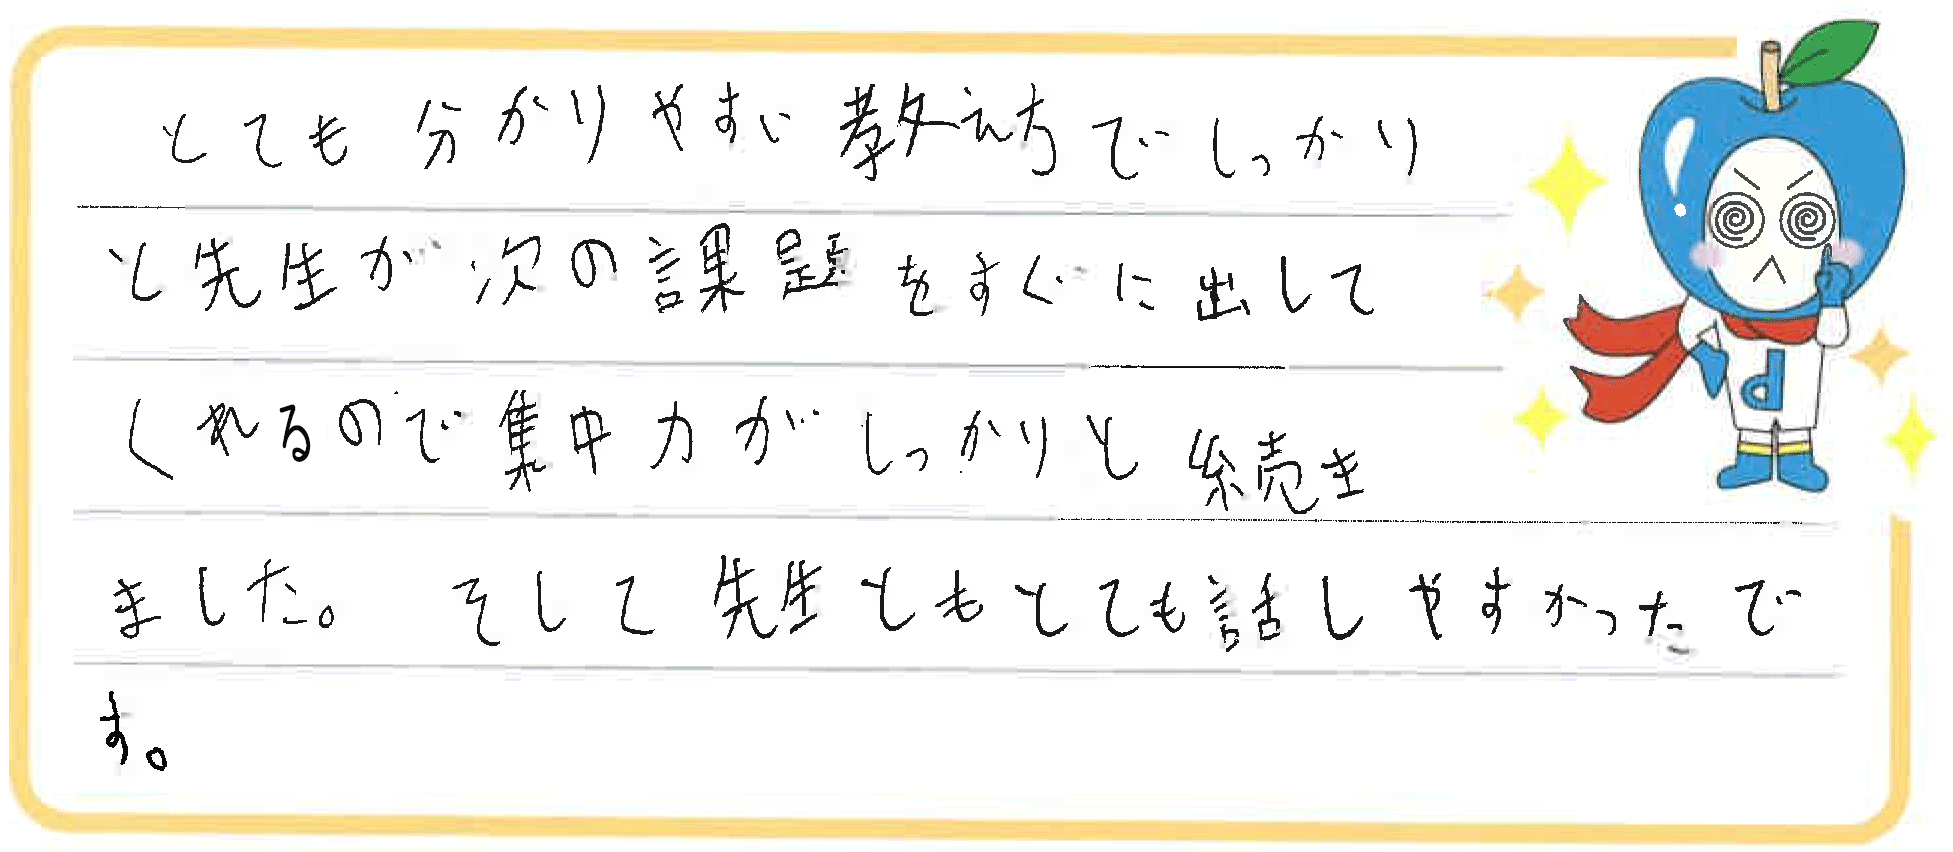 とても分かりやすい教え方でしっかり
と先生が次の課題をすぐに出して
くれるので集中力がしっかりと続き
ました。そして先生ともとても話しやすかったで
す。
d